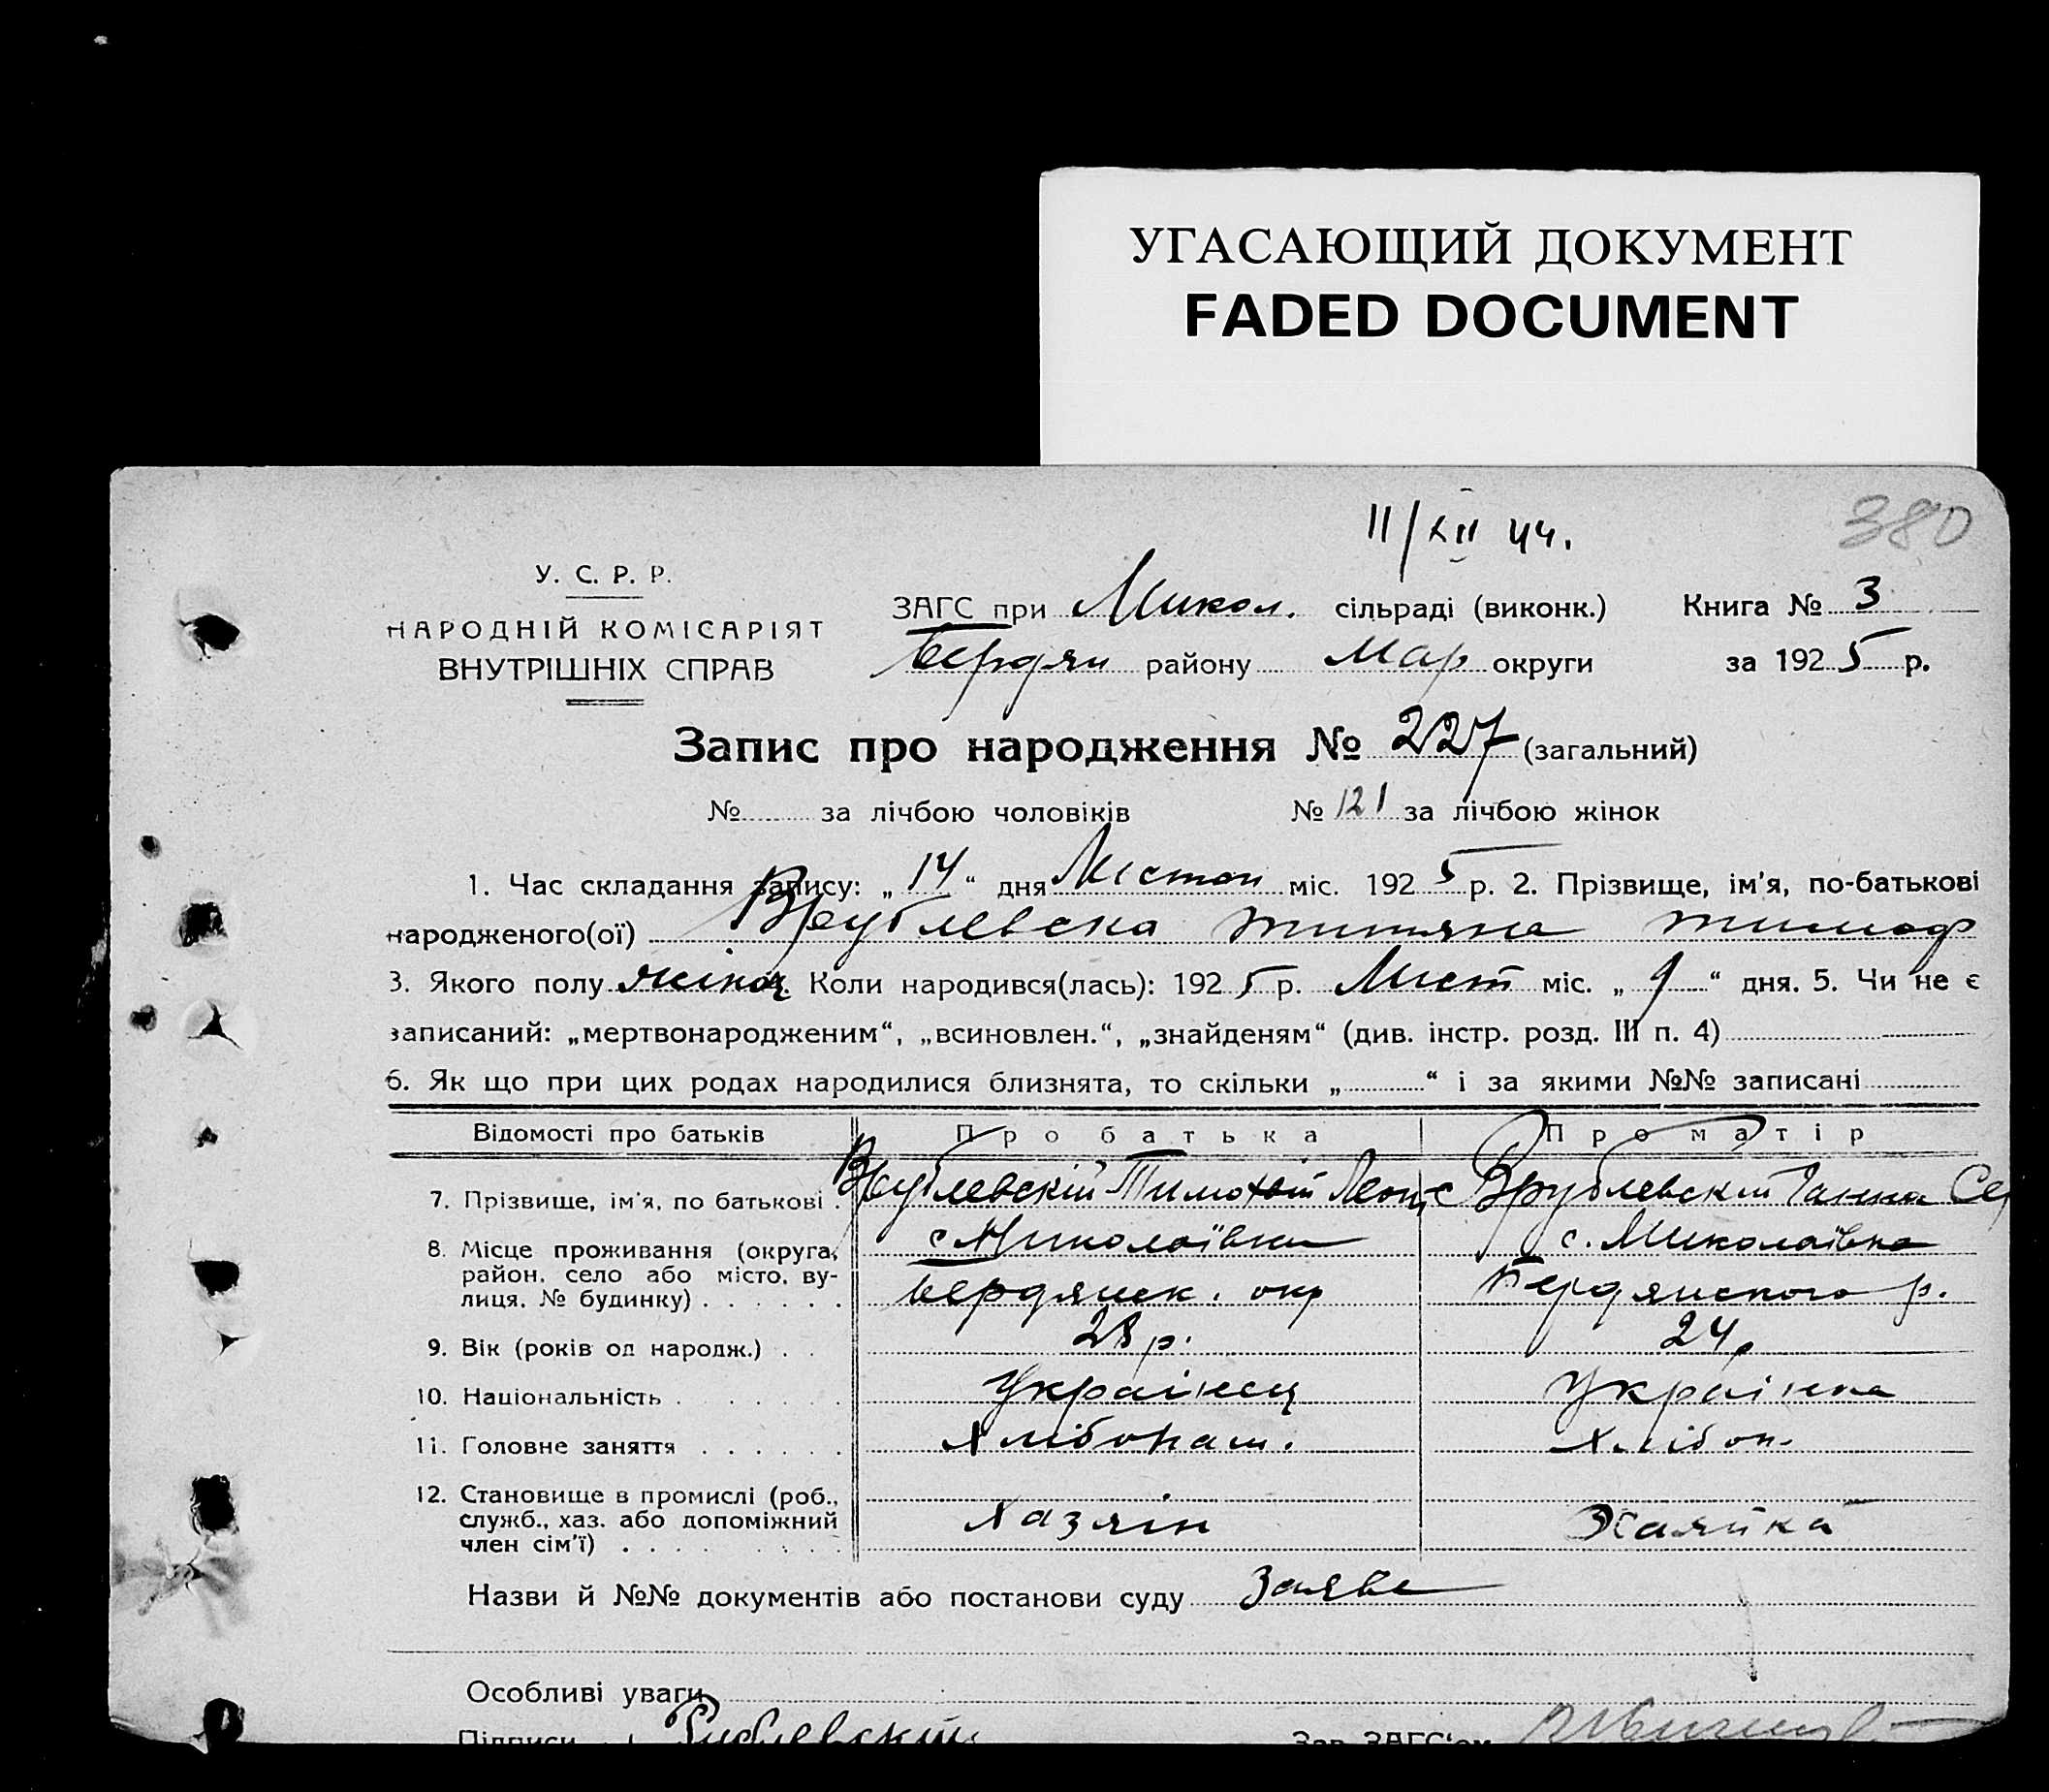 УГАСАЮЩИЙ ДОКУМЕНТ
FADED DOCUMENT
11/XII 44.
380
У. С. Р. Р.
НАРОДНІЙ КОМІСАРІЯТ
ВНУТРІШНІХ СПРАВ
ЗАГС при Микол. сільраді (виконк.) Книга № 3
Бердян району Мар округи за 1925 р.
Запис про народження № 227 (загальний)
№ ... за лічбою чоловіків № 121 за лічбою жінок
1. Час складання запису: „14“ дня Листоп міс. 1925 р. 2. Прізвище, ім'я, по-батькові
народженого(ої) Врублевска Титяна Тимоф
3. Якого полу жіноч. Коли народився(лась): 1925 р. Лист міс. „9“ дня. 5. Чи не є
записаний: „мертвонародженим“, „всиновлен.“, „знайденям“ (див. інстр. розд. III п. 4)
6. Як що при цих родах народилися близнята, то скільки „...“ і за якими №№ записані
Відомості про батьків Про батька Про матір
7. Прізвище, ім'я, по батькові . Врублевскій Тимохій Леонт Врублевскій Ганна Сер
8. Місце проживання (округа, район, село або місто, вулиця, № будинку) . с. Миколаївка с. Миколаївка
Бердянск. окр Бердянского р.
9. Вік (років од народж.) . . 28 р. 24 р
10. Національність . Українец Українка
11. Головне заняття . Хлібопаш. Хлібоп.
12. Становище в промислі (роб.,
служб., хаз. або допоміжний
член сім'ї) . Хазяін Хазяйка
Назви й №№ документів або постанови суду Заява
Особливі уваги
Підписи Врублевскій Зав. ЗАГС'ом